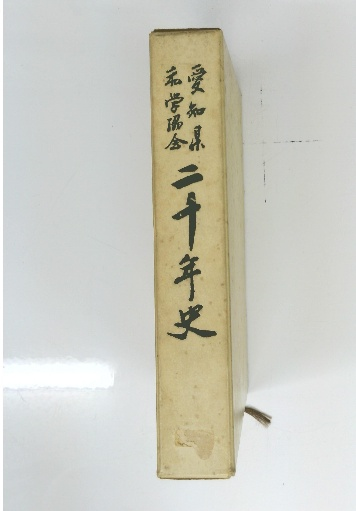 愛知県
私学協会
二十年史